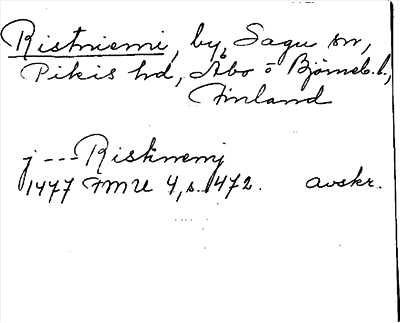 Ristniemi, by, Sagu sn,
Pikis hd, Åbo o Björneb. l.,
Finland
j --- Ristinemj
1477 FMU 4, s. 472. avskr.